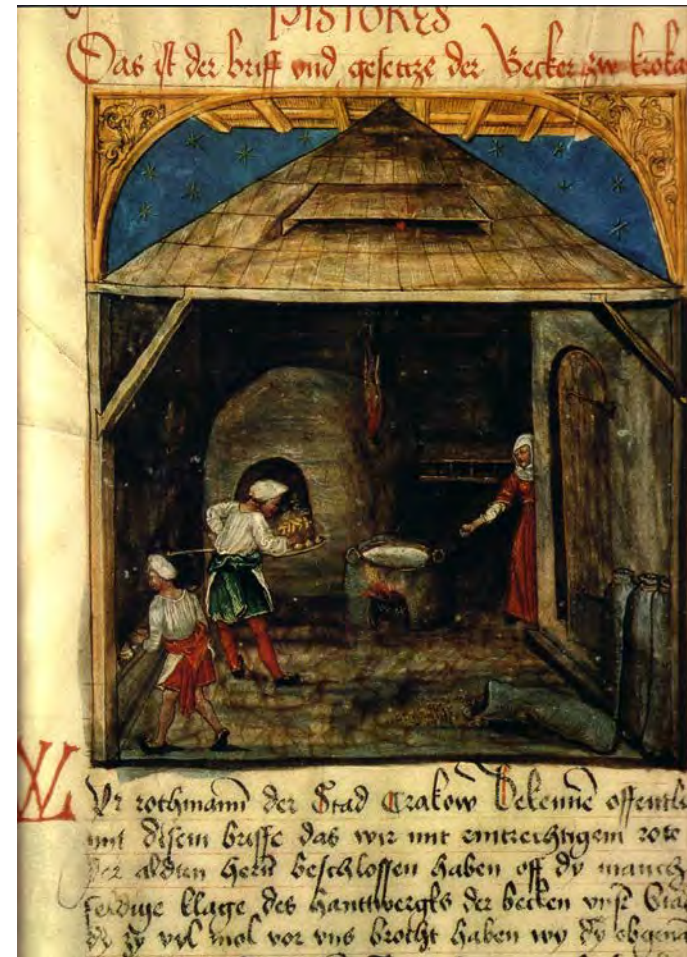 PISTORES
Das ist der briff vnd gesetcze der Becker zw kroka
Wir rothmann der Stad Crakow Bekenne offentli
mit disem briffe das wir mit eintrechtigem rote
der aldten hern beschlossen haben off dy manch
feldige klage des hanttwergks der becken vnser Stad
dy zy vyl mol vor vns brocht haben wy dy obgena